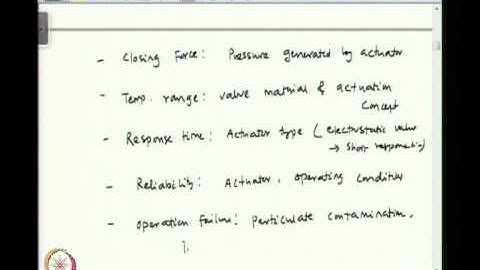 - Closing Force: Pressure generated by actuator
- Temp. range: valve material & actuation
concept
- Response time: Actuator type (electrostatic valve
→ short response time)
- Reliability: Actuator, operating condition
- Operation Failure: particulate contamination,